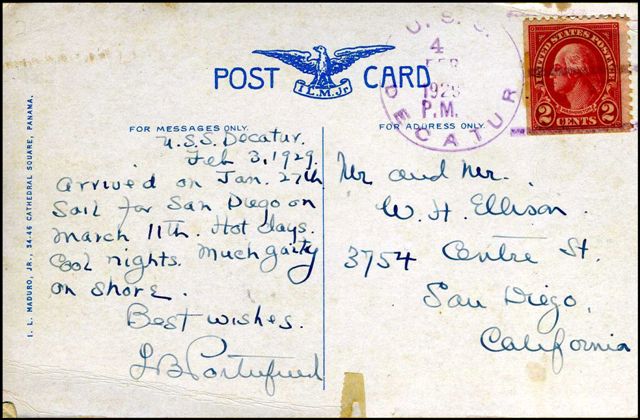 POST CARD
I.L.M.Jr.
U.S.S.
4
FEB
1929
P.M.
DECATUR
UNITED STATES POSTAGE
2 CENTS 2
FOR MESSAGES ONLY.
FOR ADDRESS ONLY.
I. L. MADURO, JR., 34-46 CATHEDRAL SQUARE, PANAMA.
U.S.S. Decatur.
Feb 3, 1929.
Arrived on Jan. 27th
Sail for San Diego on
March 11th. Hot days.
Cool nights. Much gaity
on shore.
Best wishes.
Mr and Mrs.
W. H. Ellison.
3754 Centre St.
San Diego,
California